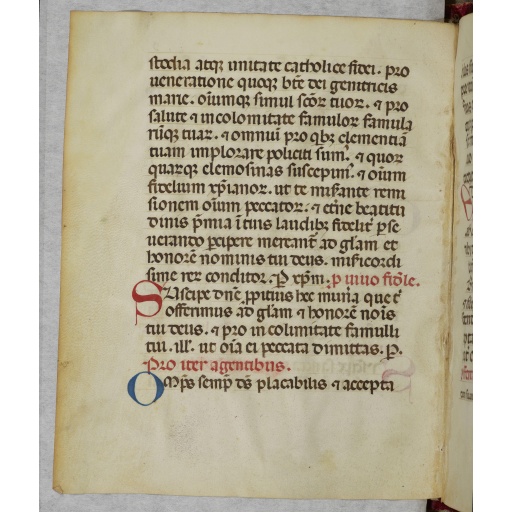 stodia atq; unitate catholice fidei. pro
ueneratione quoq; bte dei genitricis
marie. oiumq; simul scor tuor. ⁊ pro
salute ⁊ incolomitate famulor famula
ruq; tuar. ⁊ omniu pro qb; clementia
tuam implorare policiti sum'. ⁊ quor
quarq; elemosinas suscepim'. ⁊ oium
fidelium xpianor. ut te miserante remi
sionem oium peccator. ⁊ etne beatitu
dinis pmia i tuis laudib; fidelit' pse
uerando pcipere mereant' ad glam et
honore nominis tui deus. misericordi
sime rer conditor. P xpm. p uiuo fidele.
Suscipe dne ppitius hec munia que t'
offerimus ad glam ⁊ honore nois
tui deus. ⁊ pro in columitate famulli
tui. ill'. ut oia ei peccata dimittas. P.
Pro iter agentibus.
Omps semp ds placabilis ⁊ accepta